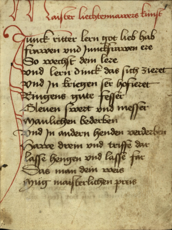 Maister liechtenawers kunst
Junck ritter lern got lieb hab
frawen und Junckfrawen ere
So wechst dein ere
und lern dinck das dich zieret
und In kriegen ser hofieret
Ringens gut fesser
Glenen swert und messer
Manlichen bederben
und In andern henden verderben
Haw̄e drein und triffe dar
lasse hengen und lasse far
Das man dein weis
Mug maisterlichen preis